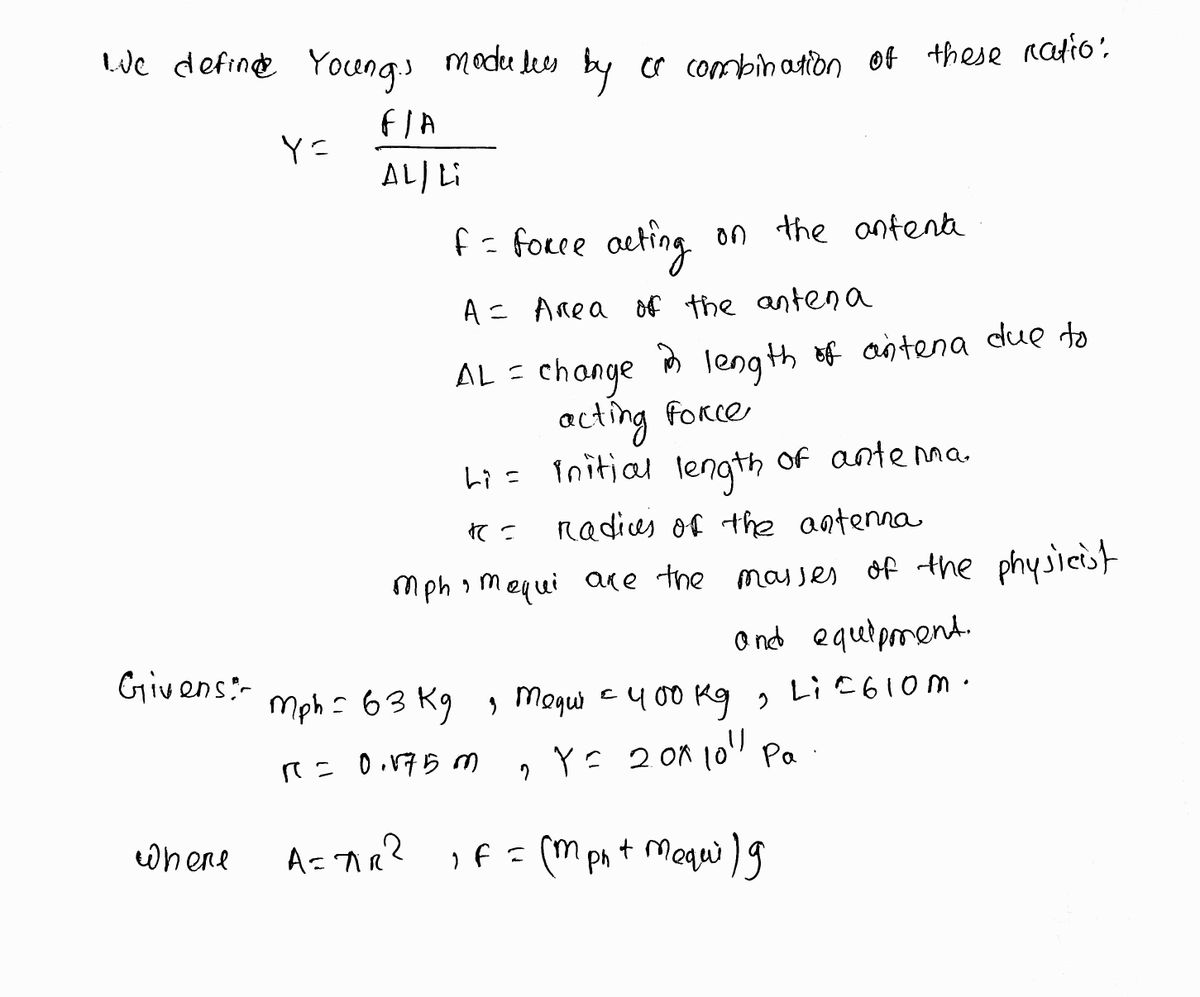 We define Young's modulus by a combination of these ratio:
Y = F/A
ΔL/Li
F = force acting on the antena
A = Area of the antena
ΔL = change in length of antena due to
acting force
Li = initial length of antenna.
r = radius of the antenna
mph, mequi are the masses of the physicist
and equipment.
Givens:- mph = 63 Kg, mequi = 400 Kg, Li = 610 m.
r = 0.175 m, Y = 20 × 10¹¹ Pa.
where A = πr², F = (mph + mequi)g